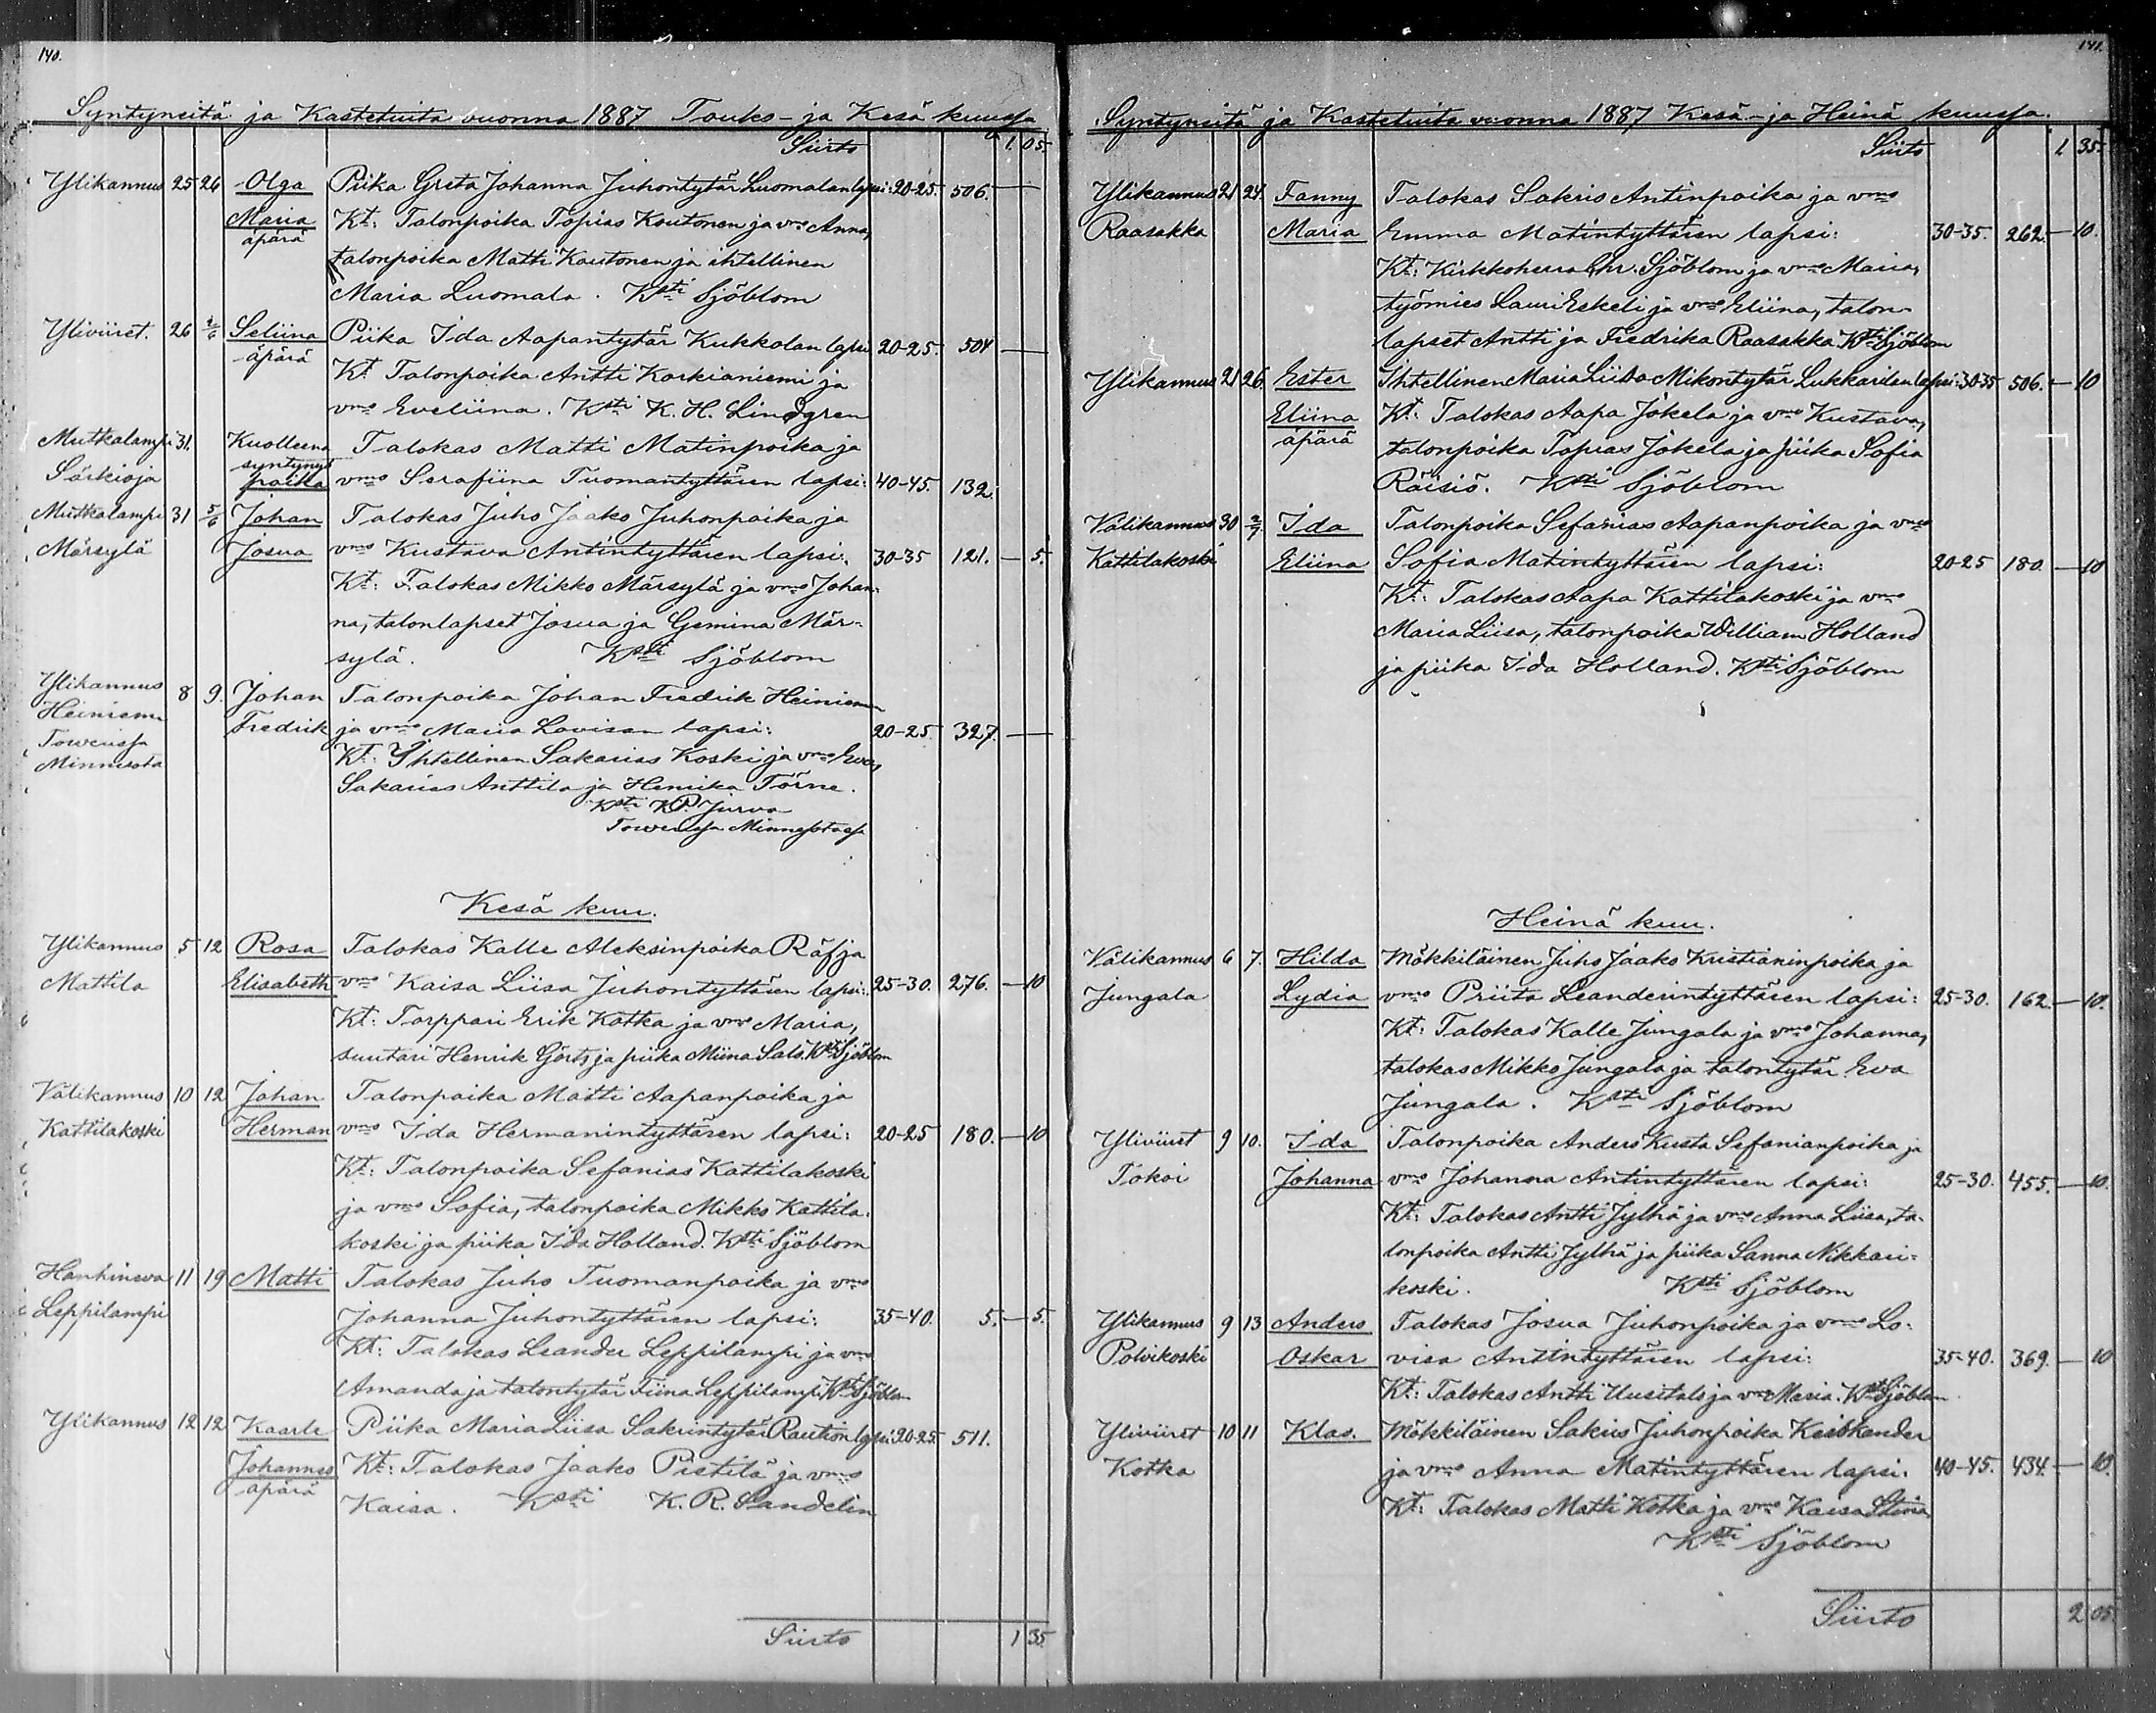 140.
Syntyneitä ja Kastetuita vuonna 1887 Touko- ja Kesä kuussa
Siirto 1. 05.
Ylikannus 25 26 Olga Piika Greta Johanna Juhontytär Luomalan lapsi: 20-25. 506. —
Maria Kt: Talonpoika Topias Koutonen ja vmo Anna,
äpärä talonpoika Matti Koutonen ja ihtellinen
Maria Luomala. Ksti Sjöblom
Yliviiret. 26 Seliina Piika Ida Aapantytär Kukkolan lapsi 20-25. 504 —
äpärä Kt Talonpoika Antti Korkianiemi ja
vmo Eveliina. Ksti K. H. Lindgren
Mutkalampi 31. Kuolleena Talokas Matti Matinpoika ja
Särkioja syntynyt poika vmo Serafiina Tuomantyttären lapsi: 40-45. 132.
Mutkalampi 31 5/6 Johan Talokas Juho Jaako Juhonpoika ja
Märsylä Josua vmo Kustava Antintyttären lapsi: 30-35 121. — 5.
Kt: Talokas Mikko Märsylä ja vmo Johan-
na, talonlapset Josua ja Gemina Mär-
sylä. Ksti Sjöblom
Ylikannus 8 9. Johan Talonpoika Johan Fredrik Heiniemen
Heiniemi Fredrik ja vmo Maria Lovisan lapsi: 20-25. 327. —
Towerissa Kt: Ihtellinen Sakarias Koski ja vmo Eva,
Minnesota Sakarias Anttila ja Henrika Törne.
Ksti K.P. Jurva
Towerissa Minnesotassa
Kesä kuu.
Ylikannus 5 12 Rosa Talokas Kalle Aleksinpoika Räf ja
Mattila Elisabeth vmo Kaisa Liisa Juhontyttären lapsi: 25-30. 276. — 10
Kt: Torppari Erik Kotka ja vmo Maria,
suutari Henrik Görts ja piika Miina Salo. Ksti Sjöblom
Välikannus 10 12 Johan Talonpoika Matti Aapanpoika ja
Kattilakoski Herman vmo Ida Hermanintyttären lapsi: 20-25 180. — 10
Kt: Talonpoika Sefanias Kattilakoski
ja vmo Sofia, talonpoika Mikko Kattila-
koski ja piika Ida Holland. Ksti Sjöblom
Hanhineva 11 19 Matti Talokas Juho Tuomanpoika ja vmo
Leppilampi Johanna Juhontyttären lapsi: 35-40. 5. — 5.
Kt: Talokas Leander Leppilampi ja vmo
Amanda ja talontytär Tiina Leppilampi, Ksti Sjöblom
Ylikannus 12 12 Kaarle Piika Maria Liisa Sakrintytär Raution lapsi: 20-25. 511.
Johannes Kt: Talokas Jaako Pistilä ja vmo
äpärä Kaisa. Ksti K. R. Sandelin
Siirto 1 35.
141.
Syntyneitä ja Kastetuita vuonna 1887 Kesä- ja Heinä kuussa.
Siirto 1 35.
Ylikannus 21 24. Fanny Talokas Sakris Antinpoika ja vmo
Raasakka Maria Emma Matintyttären lapsi: 30-35. 262. — 10.
Kt: Kirkkoherra Chr. Sjöblom ja vmo Maria,
työmies Lauri Eskeli ja vmo Eliina, talon-
lapset Antti ja Fredrika Raasakka. Ksti Sjöblom
Ylikannus 21 26. Ester Ihtellinen Maria Liisa Mikontytär Lukkarilan lapsi: 30-35 506. — 10
Eliina Kt: Talokas Aapa Jokela ja vmo Kustava,
äpärä talonpoika Topias Jokela ja piika Sofia
Räisiö. Ksti Sjöblom
Välikannus 30 2/7. Ida Talonpoika Sefanias Aapanpoika ja vmo
Kattilakoski Eliina Sofia Matintyttären lapsi: 20-25 180. — 10
Kt: Talokas Aapa Kattilakoski ja vmo
Maria Liisa, talonpoika William Holland
ja piika Ida Holland. Ksti Sjöblom
Heinä kuu.
Välikannus 6 7. Hilda Mökkiläinen Juho Jaako Kristianinpoika ja
Jungala Lydia vmo Priita Leanderintyttären lapsi: 25-30. 162. — 10.
Kt: Talokas Kalle Jungala ja vmo Johanna,
talokas Mikko Jungala ja talontytär Eva
Jungala. Ksti Sjöblom
Yliviiret 9 10. Ida Talonpoika Anders Kusta Sefanianpoika ja
Tokoi Johanna vmo Johanna Antintyttären lapsi: 25-30. 455. — 10.
Kt: Talokas Antti Jylhä ja vmo Anna Liisa, ta-
lonpoika Antti Jylhä ja piika Sanna Nikkari-
koski. Ksti Sjöblom
Ylikannus 9 13 Anders Talokas Josua Juhonpoika ja vmo Lo-
Polvikoski Oskar visa Antintyttären lapsi: 35-40. 369. — 10
Kt: Talokas Antti Uusitalo ja vmo Maria. Ksti Sjöblom
Yliviiret 10 11 Klas. Mökkiläinen Sakris Juhonpoika Keiskander
Kotka ja vmo Anna Matintyttären lapsi: 40-45. 434. — 10.
Kt: Talokas Matti Kotka ja vmo Kaisa Stina,
Ksti Sjöblom
Siirto 2 05.